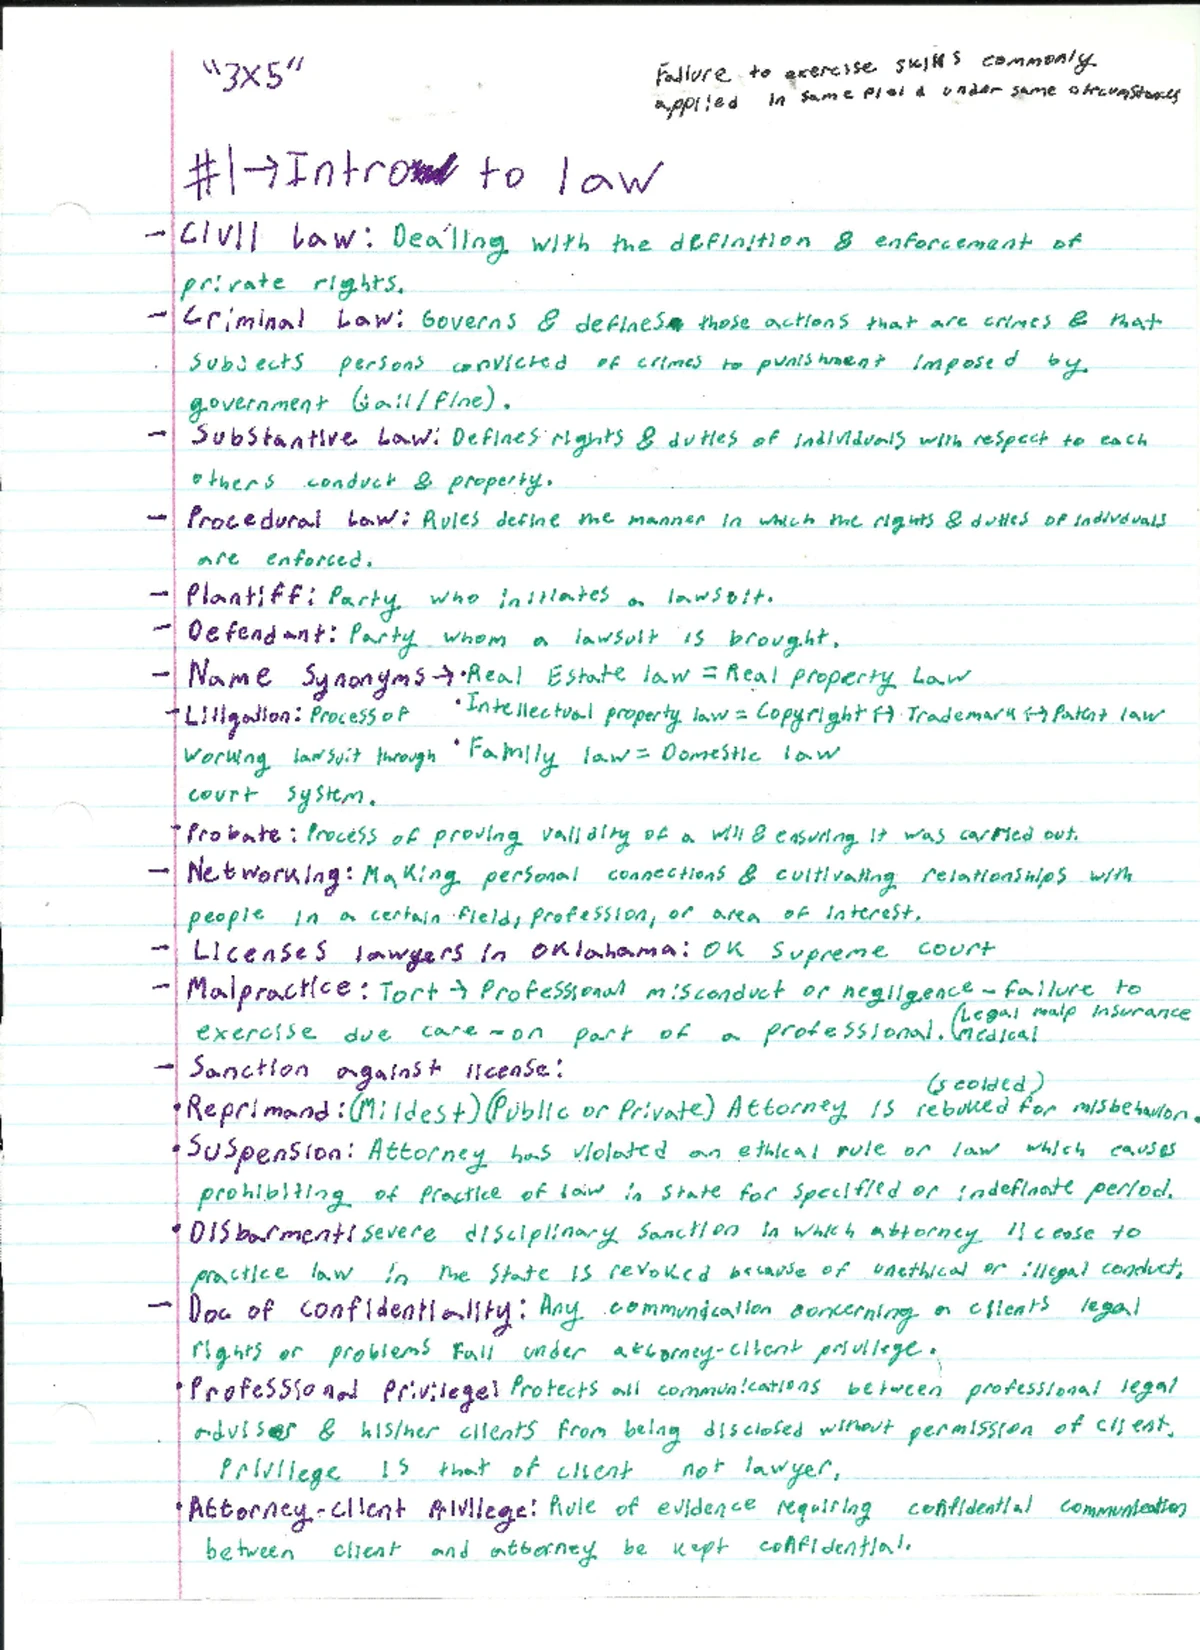 "3x5"
Failure to exercise skills commonly
applied in same field under same circumstances
#1→Intro to law
- Civil Law: Dealing with the definition & enforcement of
private rights.
- Criminal Law: Governs & defines those actions that are crimes & that
subjects persons convicted of crimes to punishment imposed by
government (jail/fine).
- Substantive Law: Defines rights & duties of individuals with respect to each
others conduct & property.
- Procedural Law: Rules define the manner in which the rights & duties of individuals
are enforced.
- Plantiff: Party who initiates a lawsuit.
- Defendant: Party whom a lawsuit is brought.
- Name Synonyms → • Real Estate law = Real property Law
- Litigation: Process of • Intellectual property law = Copyright ↔ Trademark ↔ Patent law
working lawsuit through • Family law = Domestic law
court system.
- Probate: Process of proving validity of a will & ensuring it was carried out.
- Networking: Making personal connections & cultivating relationships with
people in a certain field, profession, or area of interest.
- Licenses lawyers in Oklahoma: OK Supreme court
- Malpractice: Tort → Professional misconduct or negligence - failure to
exercise due care - on part of a professional. (Legal malp insurance
Medical
- Sanction against license:
(scolded)
• Reprimand: (Mildest) (Public or Private) Attorney is rebuked for misbehavior.
• Suspension: Attorney has violated an ethical rule or law which causes
prohibiting of practice of law in state for specified or indefinate period.
• Disbarment: severe disciplinary sanction in which attorney license to
practice law in the state is revoked because of unethical or illegal conduct.
- Doc of confidentiality: Any communication concerning a clients legal
rights or problems fall under attorney-client privilege.
• Professional Privilege: Protects all communications between professional legal
adviser & his/her clients from being disclosed without permission of client.
Privilege is that of client not lawyer.
• Attorney-client Privilege: Rule of evidence requiring confidential communication
between client and attorney be kept confidential.